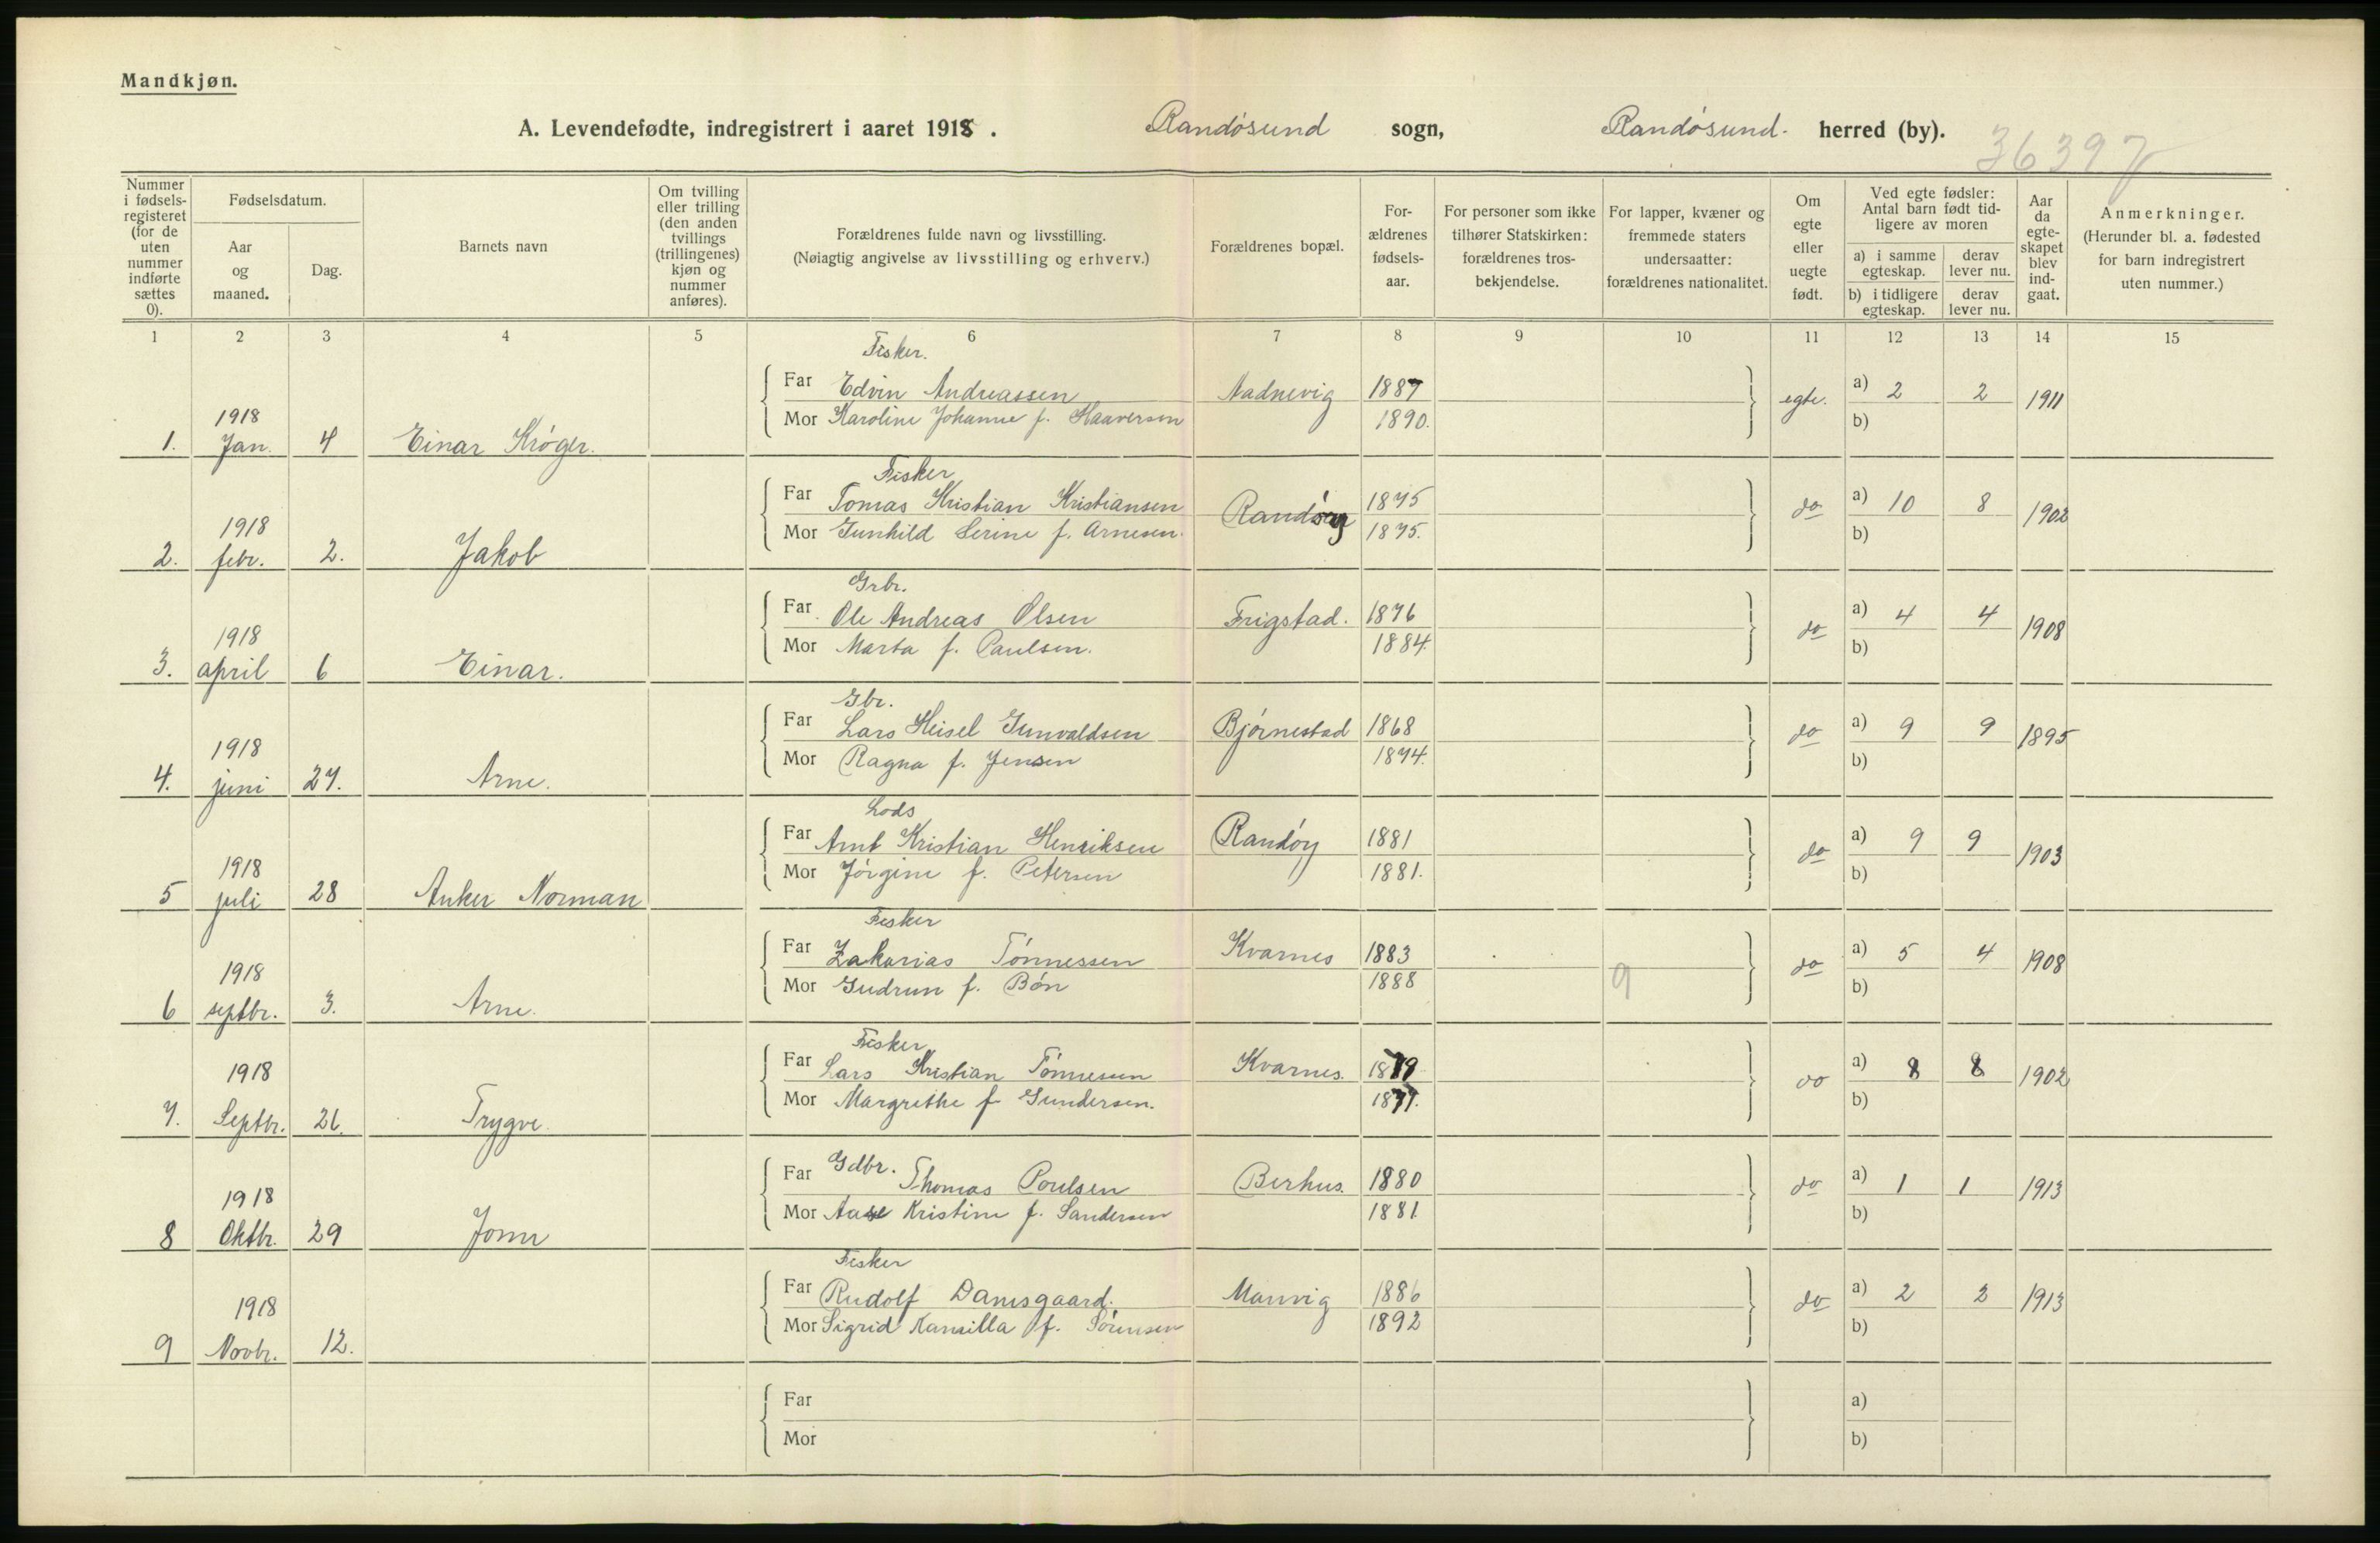 Mandkjøn.
A. Levendefødte, indregistrert i aaret 1918. Randøsund sogn, Randøsund. herred (by).
36397
Nummer i fødsels-registeret (for de uten nummer indførte sættes 0).
Fødselsdatum.
Aar og maaned.
Dag.
Barnets navn
Om tvilling eller trilling (den anden tvillings (trillingenes) kjøn og nummer anføres).
Forældrenes fulde navn og livsstilling.
(Nøiagtig angivelse av livsstilling og erhverv.)
Forældrenes bopæl.
For-ældrenes fødsels-aar.
For personer som ikke tilhører Statskirken: forældrenes tros-bekjendelse.
For lapper, kvæner og fremmede staters undersaatter: forældrenes nationalitet.
Om egte eller uegte født.
Ved egte fødsler: Antal barn født tid-ligere av moren
a) i samme egteskap. derav lever nu.
b) i tidligere egteskap. derav lever nu.
Aar da egte-skapet blev ind-gaat.
Anmerkninger.
(Herunder bl. a. fødested for barn indregistrert uten nummer.)
1 2 3 4 5 6 7 8 9 10 11 12 13 14 15
Fisker.
Far Edvin Andreassen Aadnevig 1887 egte. a) 2 2 1911
Mor Karoline Johanne f. Haaversen 1890. b)
1918
1. Jan. 4 Einar Krøger.
Fisker
Far Tomas Kristian Kristiansen Randøy 1875 do a) 10 8 1902
Mor Gunhild Serine f. Arnesen. 1875. b)
1918
2. febr. 2. Jakob
Grbr.
Far Ole Andreas Olsen Frigstad. 1876 do a) 4 4 1908
Mor Marta f. Paulsen. 1884. b)
1918
3. april 6 Einar.
Gbr.
Far Lars Heisel Gunvaldsen Bjørnestad 1868 do a) 9 9 1895
Mor Ragna f. Jensen 1874. b)
1918
4. juni 27. Arne.
Lods
Far Arnt Kristian Henriksen Randøy 1881 do a) 9 9 1903
Mor Jørgine f. Petersen 1881. b)
1918
5 juli 28 Anker Norman
Fisker
Far Zakarias Tønnessen Kvarnes 1883 do a) 5 4 1908
Mor Gudrun f. Bøn 1888 9 b)
1918
6 septbr. 3. Arne.
Fisker
Far Lars Kristian Tønnesen Kvarnes. 1879 do a) 8 8 1902
Mor Margrethe f. Gundersen. b)
1918
7. Septbr. 26. Trygve.
Far Gdbr. Thomas Poulsen Berhus. 1880 do a) 1 1 1913
Mor Aase Kristine f. Sandersen 1881. b)
1918
8 Oktbr. 29
Fisker
Far Rudolf Damsgaard. 1886 do a) 2 2 1913
Mor Sigrid f. Sørensen 1892 b)
1918
9 Novbr. 12.
Far a)
Mor b)